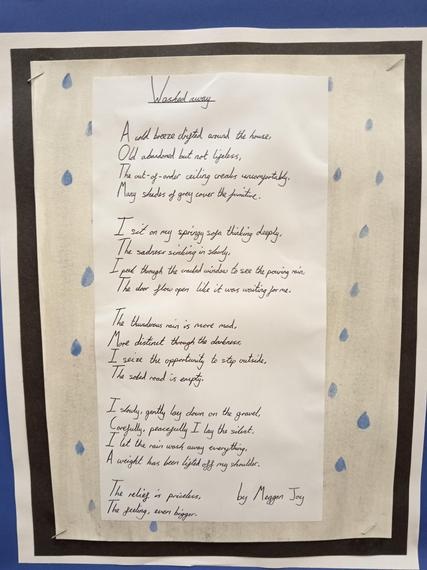 Washed away
A cold breeze drifted around the house,
Old abandoned but not lifeless,
The out-of-order ceiling creaks uncomfortably.
Many shades of grey cover the furniture.
I sit on my springy sofa thinking deeply,
The sadness sinking in slowly,
I peed through the cracked window to see the pouring rain
The door flow open like it was waiting for me.
The thunderous rain is more mad,
More distinct through the darkness.
I seize the opportunity to step outside,
The soaked road is empty.
I slowly, gently lay down on the gravel,
Carefully, peacefully I lay the silent.
I let the rain wash away everything,
A weight has been lifted off my shoulder.
The relief is priceless,
by Meggan Joy
The feeling, even bigger.